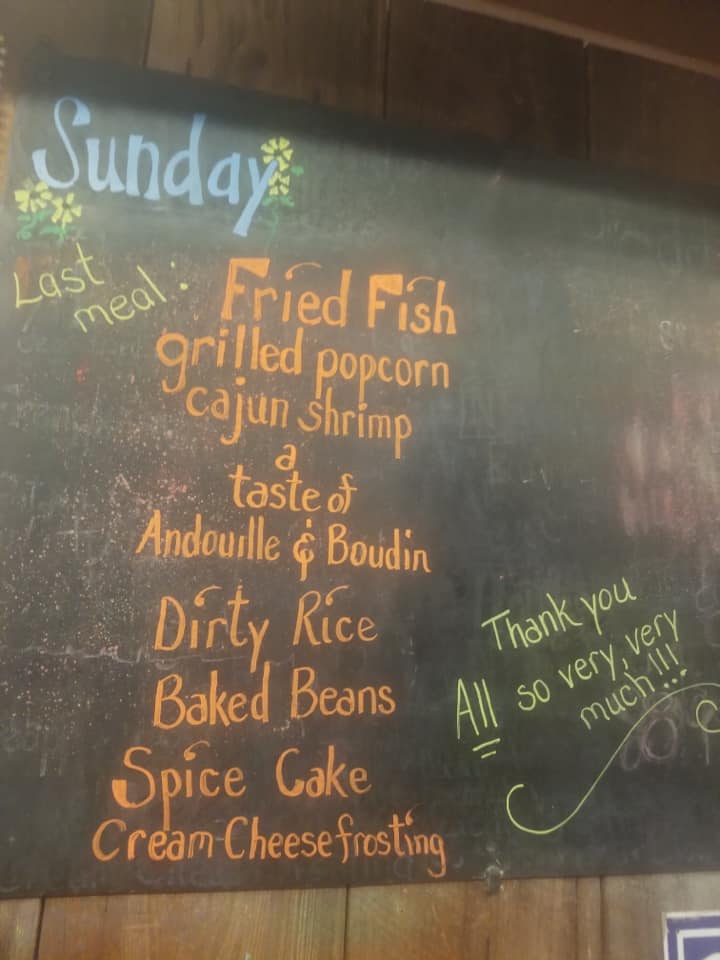 Sunday
Last
meal:
Fried Fish
grilled popcorn
cajun shrimp
a
taste of
Andouille & Boudin
Dirty Rice
Baked Beans
Spice Cake
Cream Cheese frosting
Thank you
All so very, very
much!!!